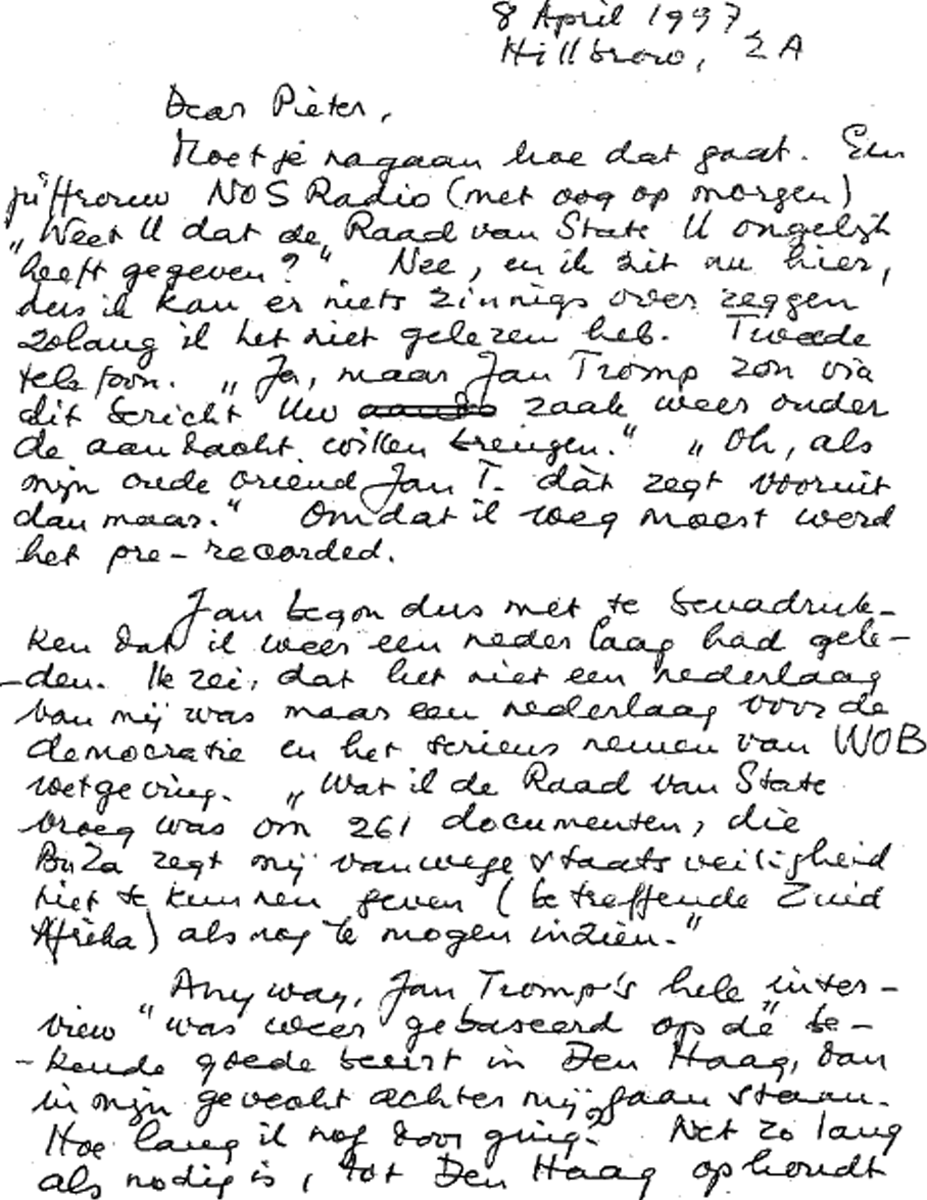 8 April 1997
Hillbrow, ZA
Dear Pieter,
Moet je nagaan hoe dat gaat. Een
juffrouw NOS Radio (met oog op morgen)
„Weet U dat de Raad van State U ongelijk
heeft gegeven?" Nee, en ik zit nu hier,
dus ik kan er niets zinnigs over zeggen
zolang ik het niet gelezen heb. Tweede
telefoon. „Ja, maar Jan Tromp zou via
dit bericht Uw zaak weer onder
de aandacht willen brengen." „Oh, als
mijn oude vriend Jan T. dàt zegt vooruit
dan maar." Omdat ik weg moest werd
het pre-recorded.
Jan begon dus met te benadruk-
ken dat ik weer een nederlaag had gele-
-den. Ik zei, dat het niet een nederlaag
van mij was maar een nederlaag voor de
democratie en het serieus nemen van WOB
wetgeving. „Wat ik de Raad van State
vroeg was om 261 documenten, die
BuZa zegt mij vanwege staatsveiligheid
niet te kunnen geven (betreffende Zuid
Afrika) alsnog te mogen inzien."
Anyway, Jan Tromp's hele "inter-
view" was weer gebaseerd op de be-
-kende goede beest in Den Haag,
in mijn gevecht achter mij gaan staan.
Hoe lang ik nog door ging? Net zo lang
als nodig is, tot Den Haag ophoudt